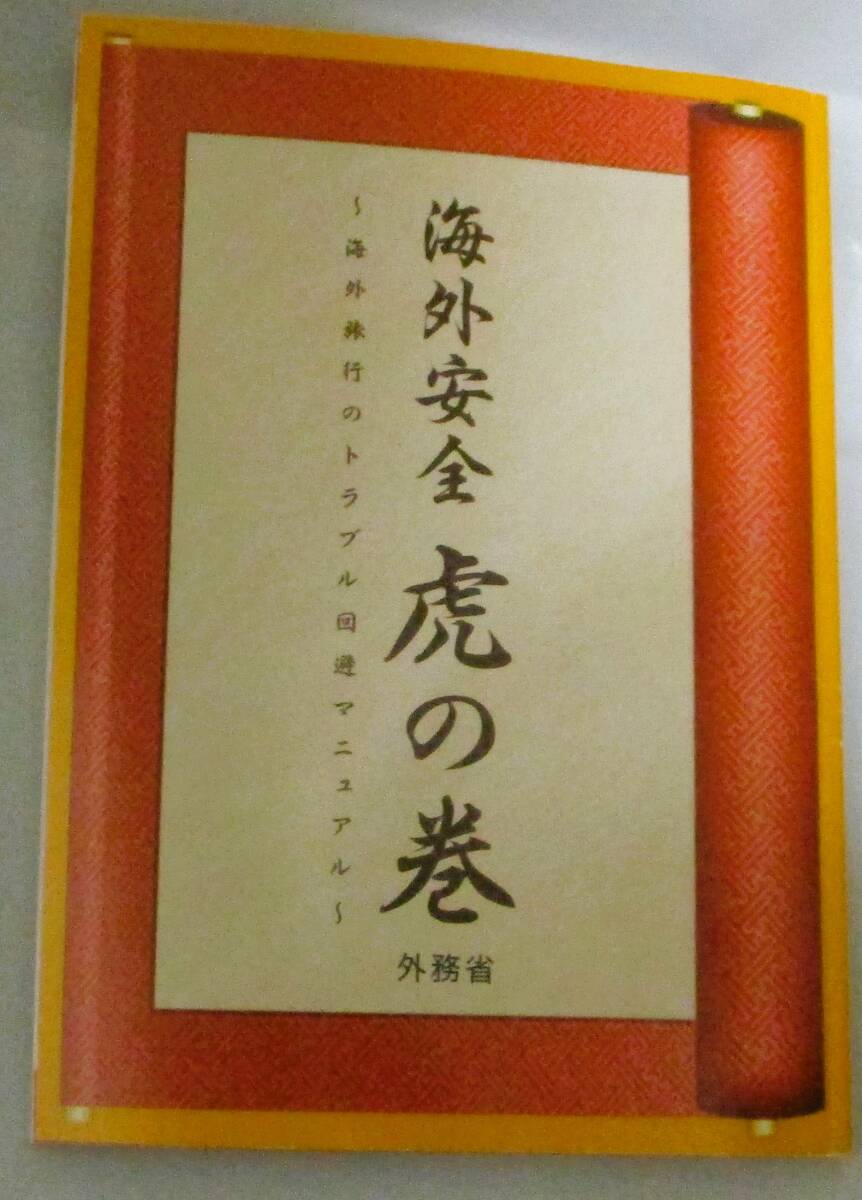 海外安全 虎の巻
～海外旅行のトラブル回避マニュアル～
外務省